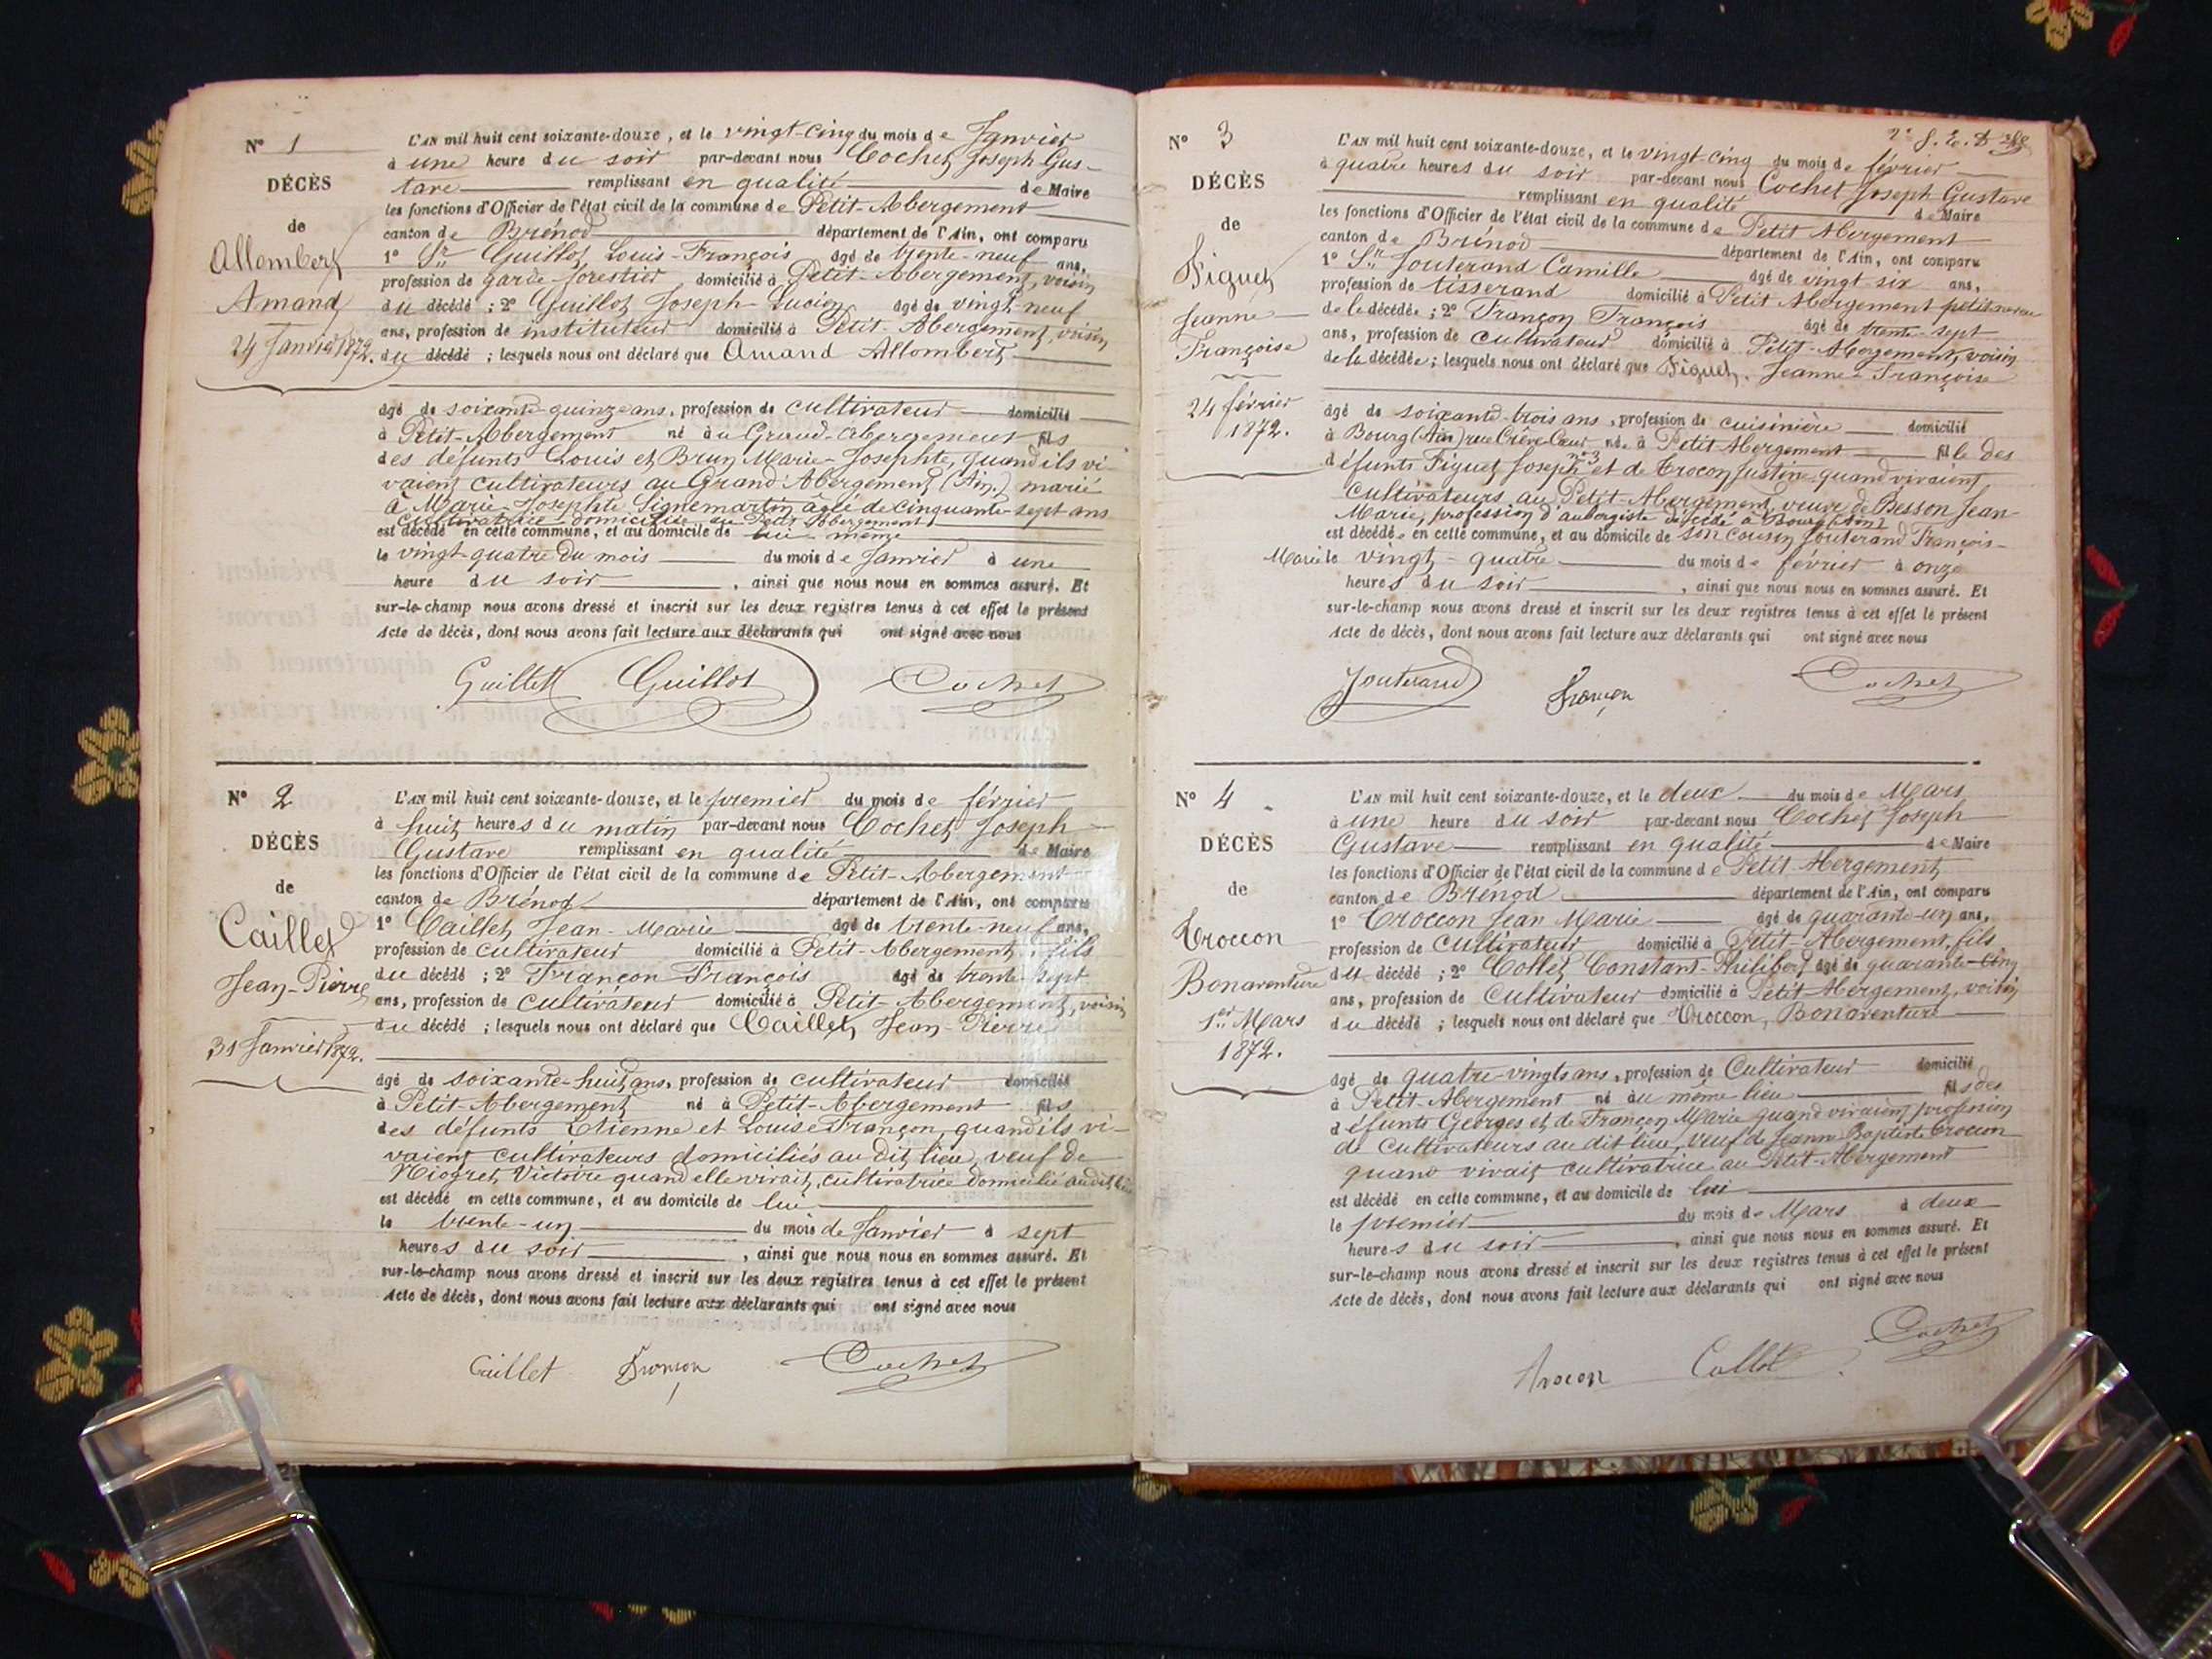 N° 1
DÉCÈS
de
Allombert
Amand
24 Janvier 1872.
L'AN mil huit cent soixante-douze, et le vingt-cinq du mois de Janvier
à une heure du soir par-devant nous Cochet Joseph Gus-
tave remplissant en qualité de Maire
les fonctions d'Officier de l'état civil de la commune de Petit-Abergement
canton de Brénod département de l'Ain, ont comparu
1° Sr Guillot Louis-François âgé de trente-neuf ans,
profession de garde forestier domicilié à Petit-Abergement, voisin
du décédé ; 2° Guillot Joseph-Lucien âgé de vingt-neuf
ans, profession de instituteur domicilié à Petit-Abergement, voisin
du décédé ; lesquels nous ont déclaré que Amand Allombert
âgé de soixante-quinze ans, profession de cultivateur domicilié
à Petit-Abergement né à u Grand-Abergement fils
des défunts Louis et Brun Marie-Josephte, quand ils vi-
vaient cultivateurs au Grand-Abergement (Ain) marié
à Marie-Josephte Signemartin âgée de cinquante-sept ans
cultivatrice domiciliée au Petit Abergement
est décédé en cette commune, et au domicile de lui même
le vingt-quatre du mois du mois de Janvier à une
heure du soir, ainsi que nous nous en sommes assuré. Et
sur-le-champ nous avons dressé et inscrit sur les deux registres tenus à cet effet le présent
Acte de décès, dont nous avons fait lecture aux déclarants qui ont signé avec nous
Guillot Guillot Cochet
N° 2
DÉCÈS
de
Caillet
Jean-Pierre
31 Janvier 1872.
L'AN mil huit cent soixante-douze, et le premier du mois de février
à huit heures du matin par-devant nous Cochet Joseph
Gustave remplissant en qualité de Maire
les fonctions d'Officier de l'état civil de la commune de Petit-Abergement
canton de Brénod département de l'Ain, ont comparu
1° Caillet Jean-Marie âgé de trente-neuf ans,
profession de cultivateur domicilié à Petit-Abergement, fils
du décédé ; 2° Françon François âgé de trente-sept
ans, profession de cultivateur domicilié à Petit-Abergement, voisin
du décédé ; lesquels nous ont déclaré que Caillet, Jean-Pierre
âgé de soixante-huit ans, profession de cultivateur domicilié
à Petit-Abergement né à Petit-Abergement fils
des défunts Etienne et Louise Françon, quand ils vi-
vaient cultivateurs domiciliés au dit lieu, veuf de
Niogret Victoire quand elle vivait, cultivatrice domiciliée au dit lieu
est décédé en cette commune, et au domicile de lui
le trente-un du mois de Janvier à sept
heures du soir, ainsi que nous nous en sommes assuré. Et
sur-le-champ nous avons dressé et inscrit sur les deux registres tenus à cet effet le présent
Acte de décès, dont nous avons fait lecture aux déclarants qui ont signé avec nous
Caillet Françon Cochet
N° 3
DÉCÈS
de
Figuet
Jeanne
Françoise
24 février
1872.
L'AN mil huit cent soixante-douze, et le vingt-cinq du mois de février
à quatre heures du soir par-devant nous Cochet Joseph Gustave
remplissant en qualité de Maire
les fonctions d'Officier de l'état civil de la commune de Petit Abergement
canton de Brénod département de l'Ain, ont comparu
1° Sr Jouterand Camille âgé de vingt six ans,
profession de tisserand domicilié à Petit Abergement petit neveu
de le décédée ; 2° Françon François âgé de trente-sept
ans, profession de cultivateur domicilié à Petit-Abergement, voisin
de la décédée ; lesquels nous ont déclaré que Figuet, Jeanne-Françoise
âgé de soixante-trois ans, profession de cuisinière domicilié
à Bourg (Ain) rue Crève-Cœur n° 3 née à Petit Abergement fille des
défunts Figuet Joseph et de Crocon Justine quand vivaient
cultivateurs au Petit-Abergement, veuve de Besson Jean-
Marie, profession d'aubergiste décédé à Bourg (Ain)
est décédée en cette commune, et au domicile de son cousin Jouterand François-
Marie le vingt-quatre du mois de février à onze
heures du soir, ainsi que nous nous en sommes assuré. Et
sur-le-champ nous avons dressé et inscrit sur les deux registres tenus à cet effet le présent
Acte de décès, dont nous avons fait lecture aux déclarants qui ont signé avec nous
Jouterand Françon Cochet
N° 4
DÉCÈS
de
Croccon
Bonaventure
1er Mars
1872.
L'AN mil huit cent soixante-douze, et le deux du mois de Mars
à une heure du soir par-devant nous Cochet Joseph
Gustave remplissant en qualité de Maire
les fonctions d'Officier de l'état civil de la commune de Petit Abergement
canton de Brénod département de l'Ain, ont comparu
1° Croccon Jean Marie âgé de quarante-un ans,
profession de cultivateur domicilié à Petit-Abergement, fils
du décédé ; 2° Collet Constant-Philibert âgé de quarante-cinq
ans, profession de Cultivateur domicilié à Petit Abergement, voisin
du décédé ; lesquels nous ont déclaré que Croccon, Bonaventure
âgé de quatre-vingts ans, profession de Cultivateur domicilié
à Petit-Abergement né à u même lieu fils des
défunts Georges et de Françon Marie quand vivaient profession
de cultivateurs au dit lieu, veuf de Jeanne Baptiste Croccon
quand vivait cultivatrice au Petit-Abergement
est décédé en cette commune, et au domicile de lui
le premier du mois de Mars à deux
heures du soir, ainsi que nous nous en sommes assuré. Et
sur-le-champ nous avons dressé et inscrit sur les deux registres tenus à cet effet le présent
Acte de décès, dont nous avons fait lecture aux déclarants qui ont signé avec nous
Crocon Collet Cochet